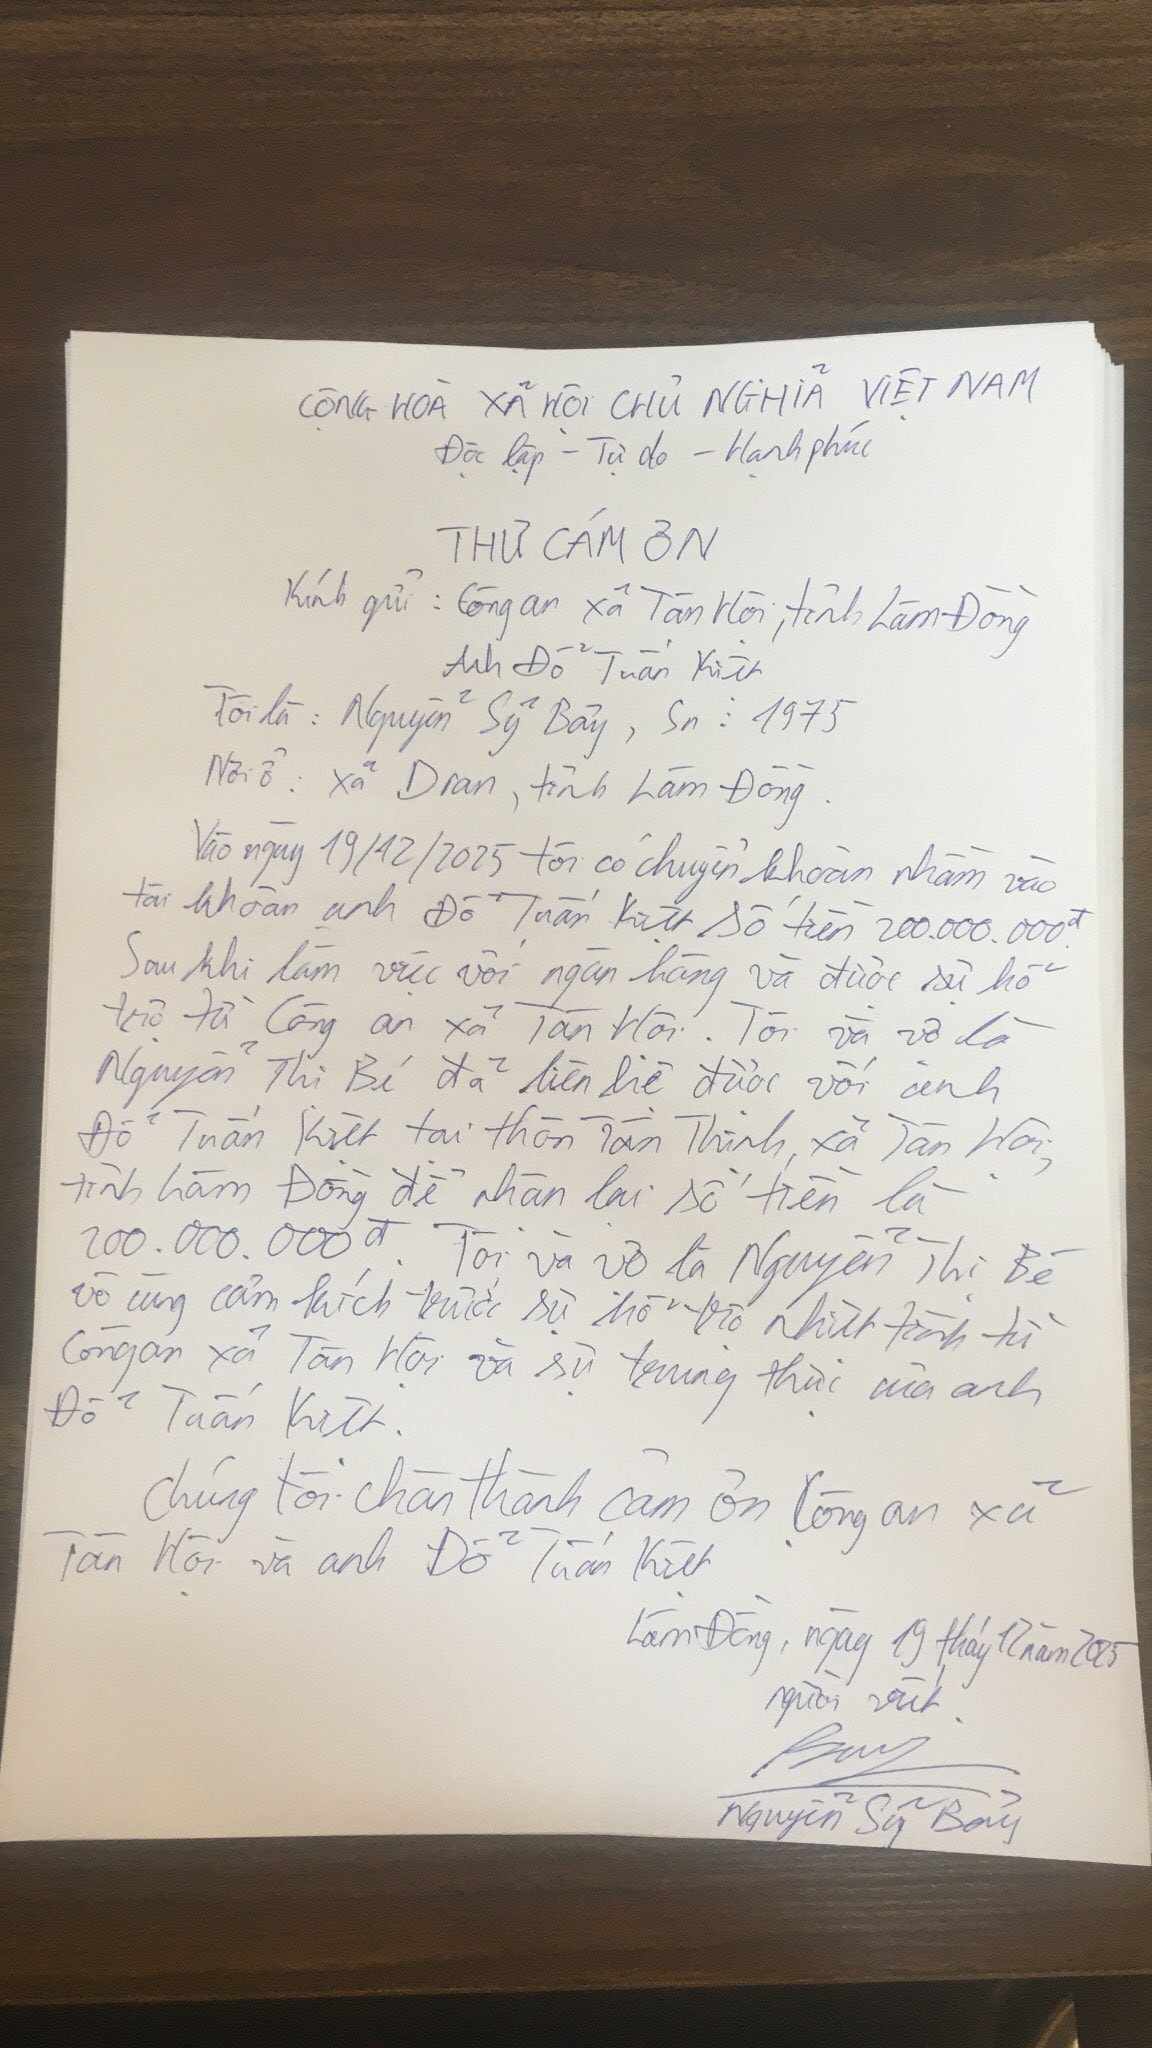 CỘNG HOÀ XÃ HỘI CHỦ NGHĨA VIỆT NAM
Độc lập - Tự do - Hạnh phúc
THƯ CẢM ƠN
Kính gửi : Công an xã Tân Hội, tỉnh Lâm Đồng
Anh Đỗ Tuấn Kiệt
Tôi là : Nguyễn Sỹ Bảy, Sn : 1975
Nơi ở : xã Dran, tỉnh Lâm Đồng.
Vào ngày 19/12/2025 tôi có chuyển khoản nhầm vào
tài khoản anh Đỗ Tuấn Kiệt số tiền 200.000.000đ.
Sau khi làm việc với ngân hàng và được sự hỗ
trợ từ Công an xã Tân Hội. Tôi và vợ là
Nguyễn Thị Bé đã liên hệ được với anh
Đỗ Tuấn Kiệt tại thôn Tân Thịnh, xã Tân Hội,
tỉnh Lâm Đồng để nhận lại số tiền là
200.000.000đ. Tôi và vợ là Nguyễn Thị Bé
vô cùng cảm kích trước sự hỗ trợ nhiệt tình từ
Công an xã Tân Hội và sự trung thực của anh
Đỗ Tuấn Kiệt.
Chúng tôi chân thành cảm ơn Công an xã
Tân Hội và anh Đỗ Tuấn Kiệt
Lâm Đồng, ngày 19 tháy 12 năm 2025
người viết.
Bảy
Nguyễn Sỹ Bảy